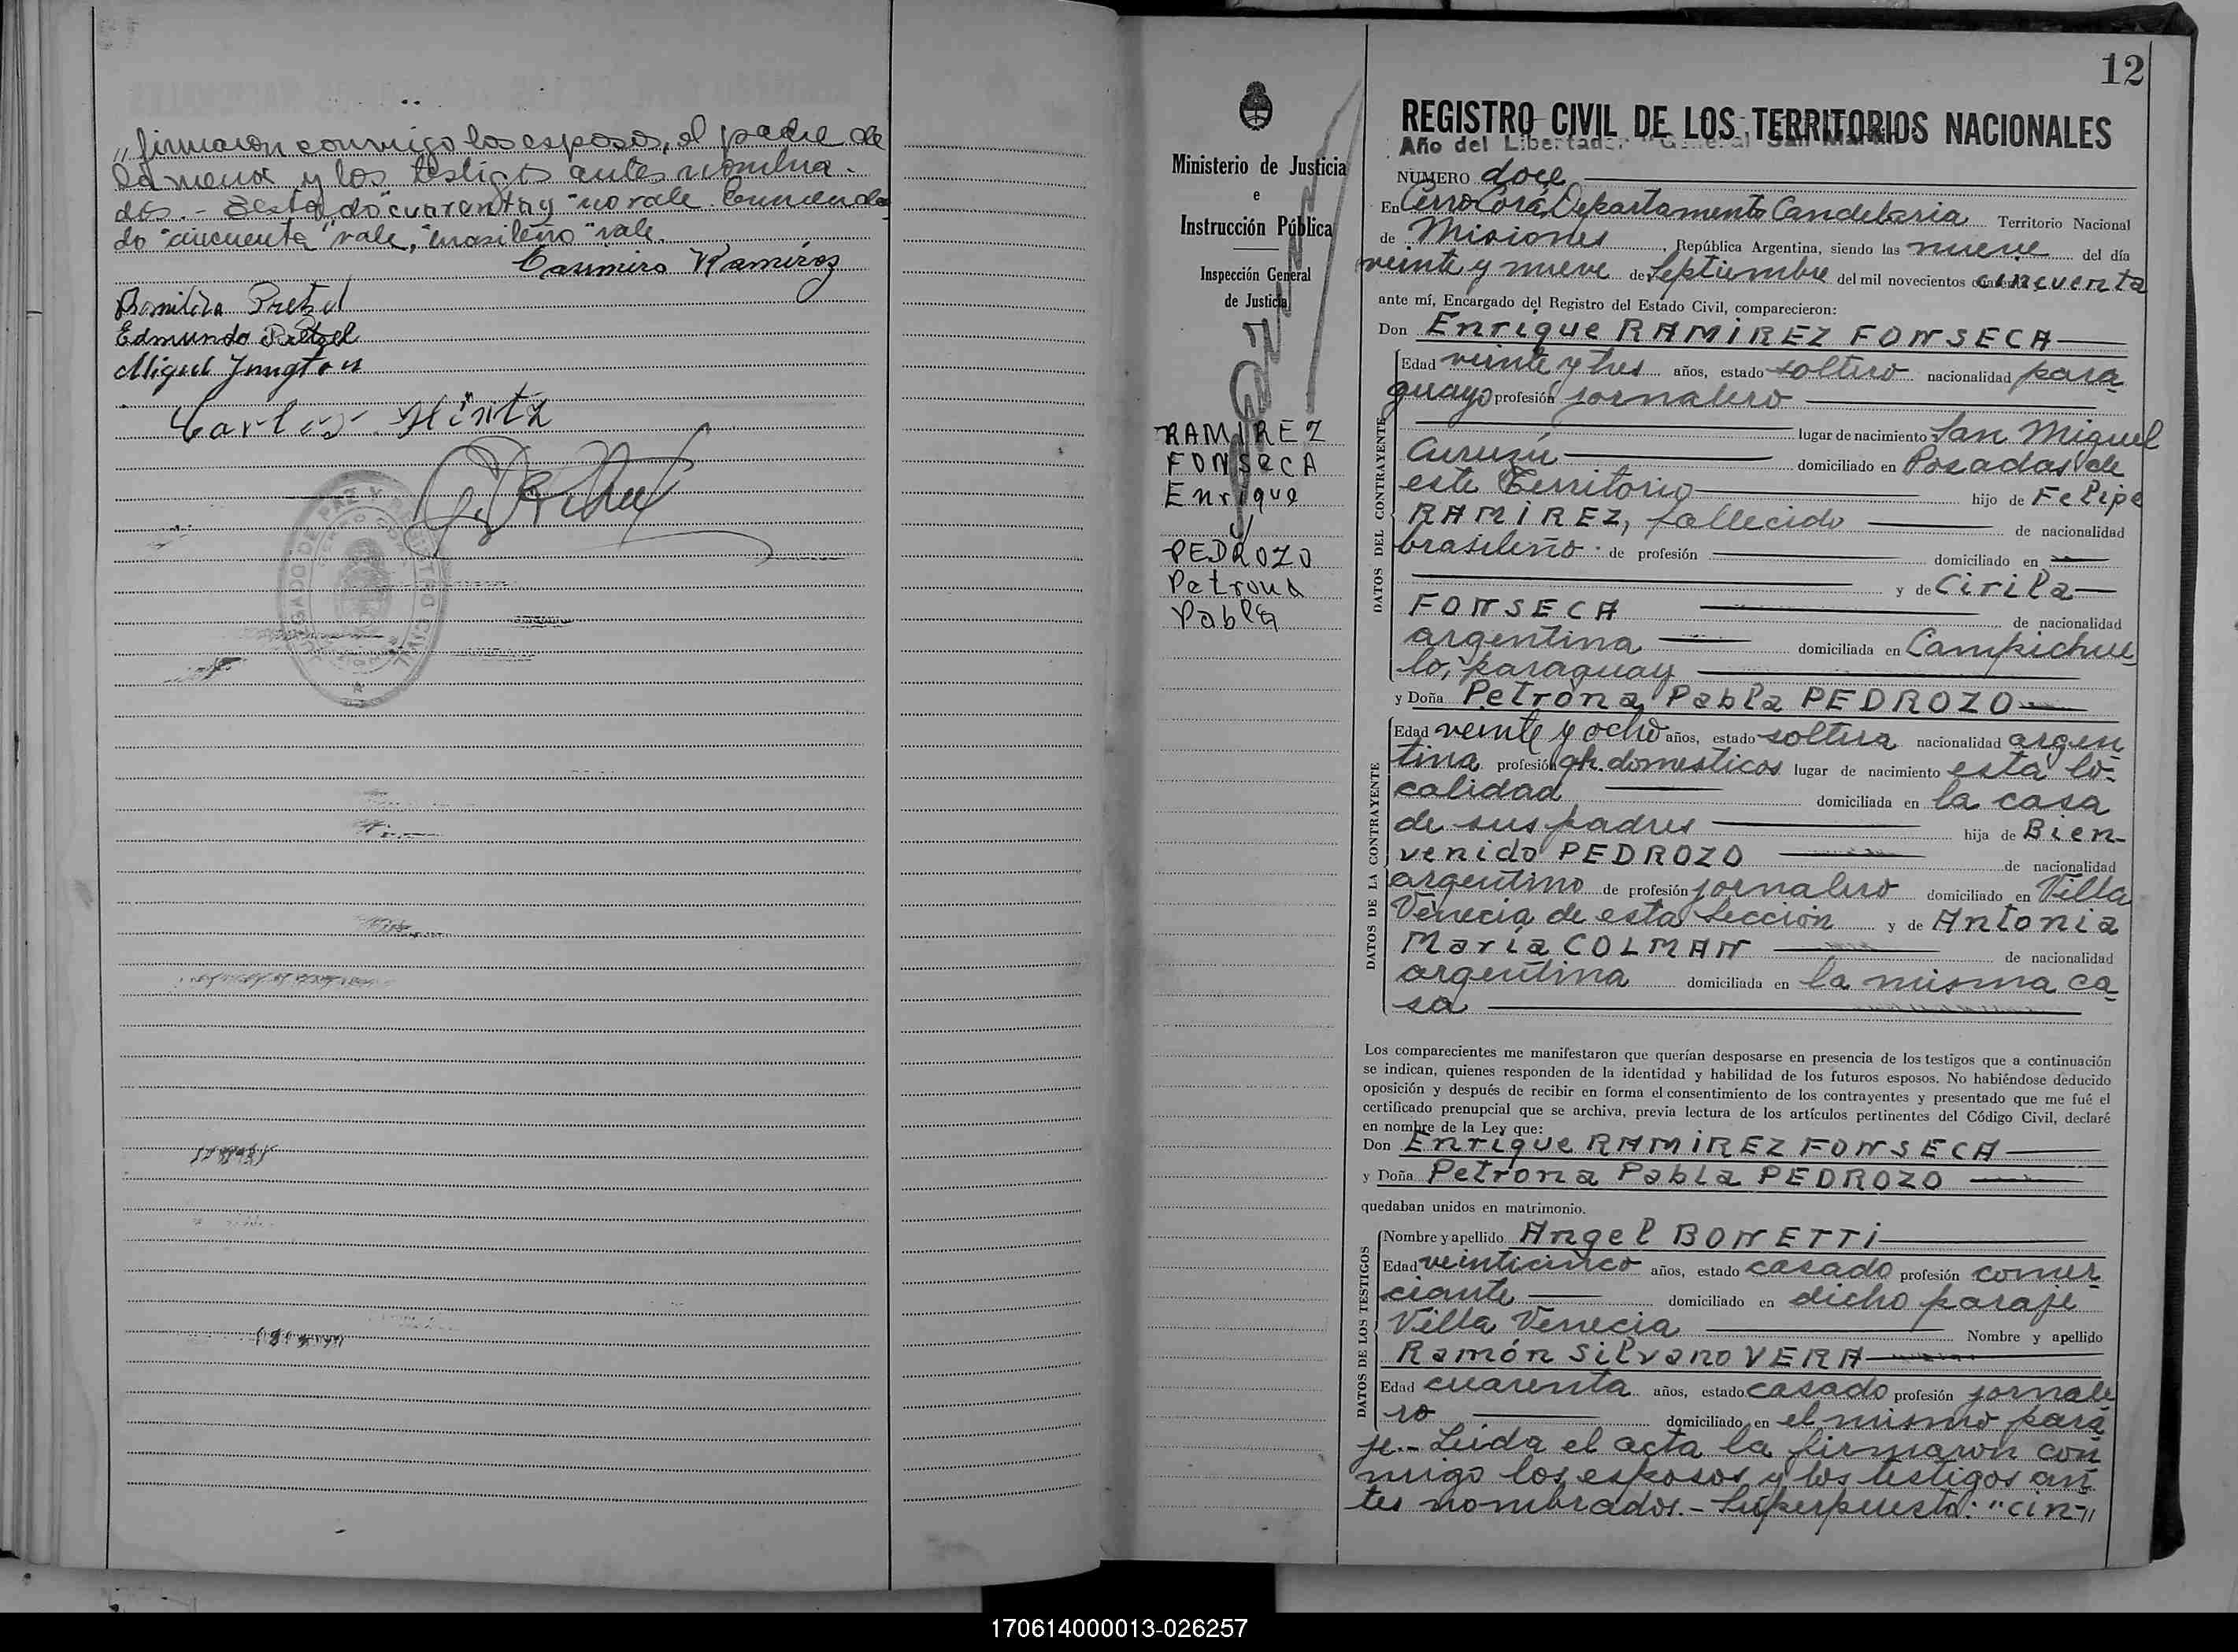 „firmaron conmigo los esposos, el padre de
la menor y los testigos antes nombra-
dos.- "cuarenta y" no vale. Enmenda-
do "cincuenta" vale, "brasileño" vale.
Casimiro Ramírez
Pretzel
Edmundo Pretzel
Miguel
Carlos Hintz
12
Ministerio de Justicia
e
Instrucción Pública
Inspección General
de Justicia
RAMIREZ
FONSECA
Enrique
y
PEDROZO
Petrona
Pabla
REGISTRO CIVIL DE LOS TERRITORIOS NACIONALES
Año del Libertador "General San Martín"
NUMERO doce
En Cerro Corá, Departamento Candelaria Territorio Nacional
de Misiones, República Argentina, siendo las nueve del día
veinte y nueve de Septiembre del mil novecientos cincuenta
ante mí, Encargado del Registro del Estado Civil, comparecieron:
Don Enrique RAMIREZ FONSECA
DATOS DEL CONTRAYENTE
Edad veinte y tres años, estado soltero nacionalidad para
guayo profesión jornalero
lugar de nacimiento San Miguel
Curuzú domiciliado en Posadas de
este Territorio hijo de Felipe
RAMIREZ, fallecido de nacionalidad
brasileño de profesión domiciliado en
y de Cirila
FONSECA de nacionalidad
argentina domiciliada en Campichue
lo, paraguay
y Doña Petrona Pabla PEDROZO
DATOS DE LA CONTRAYENTE
Edad veinte y ocho años, estado soltera nacionalidad argen
tina profesión qh. domesticos lugar de nacimiento esta lo-
calidad domiciliada en la casa
de sus padres hija de Bien-
venido PEDROZO de nacionalidad
argentino de profesión jornalero domiciliado en Villa
Venecia de esta Sección y de Antonia
María COLMAN de nacionalidad
argentina domiciliada en la misma ca-
sa
Los comparecientes me manifestaron que querían desposarse en presencia de los testigos que a continuación
se indican, quienes responden de la identidad y habilidad de los futuros esposos. No habiéndose deducido
oposición y después de recibir en forma el consentimiento de los contrayentes y presentado que me fué el
certificado prenupcial que se archiva, previa lectura de los artículos pertinentes del Código Civil, declaré
en nombre de la Ley que:
Don Enrique RAMIREZ FONSECA
y Doña Petrona Pabla PEDROZO
quedaban unidos en matrimonio.
DATOS DE LOS TESTIGOS
Nombre y apellido Angel BONETTI
Edad veinticinco años, estado casado profesión comer-
ciante domiciliado en dicho paraje
Villa Venecia Nombre y apellido
Ramón Silvano VERA
Edad cuarenta años, estado casado profesión jornale
ro domiciliado en el mismo para
je.- Leida el acta la firmaron con
migo los esposos y los testigos an
tes nombrados.- Superpuesto: "cin-"
170614000013-026257